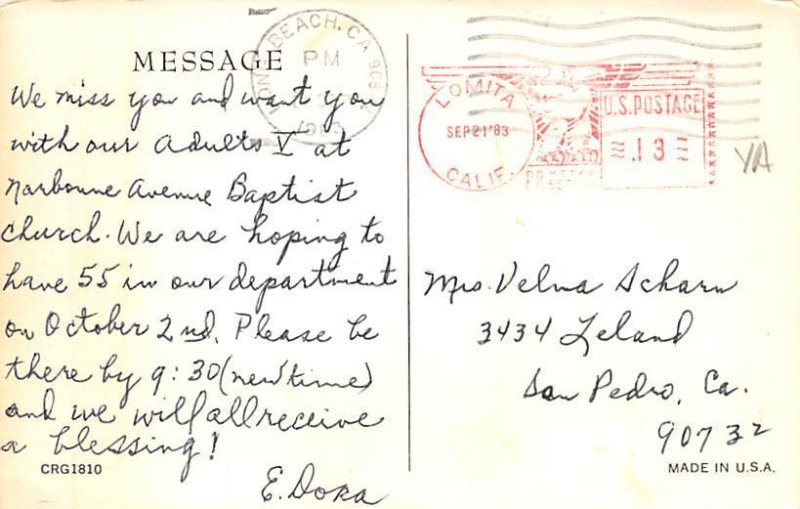 MESSAGE
We miss you and want you
with our Adults V at
Narbonne Avenue Baptist
Church. We are hoping to
have 55 in our department
on October 2nd. Please be
there by 9:30 (new time)
and we will all receive
a blessing!
E. Dora
CRG1810
LONG BEACH, CA 908
PM
LOMITA
SEP 21 '83
CALIF.
U.S. POSTAGE
.13
YA
Mrs. Velma Scharn
3434 Leland
San Pedro, Ca.
90732
MADE IN U.S.A.